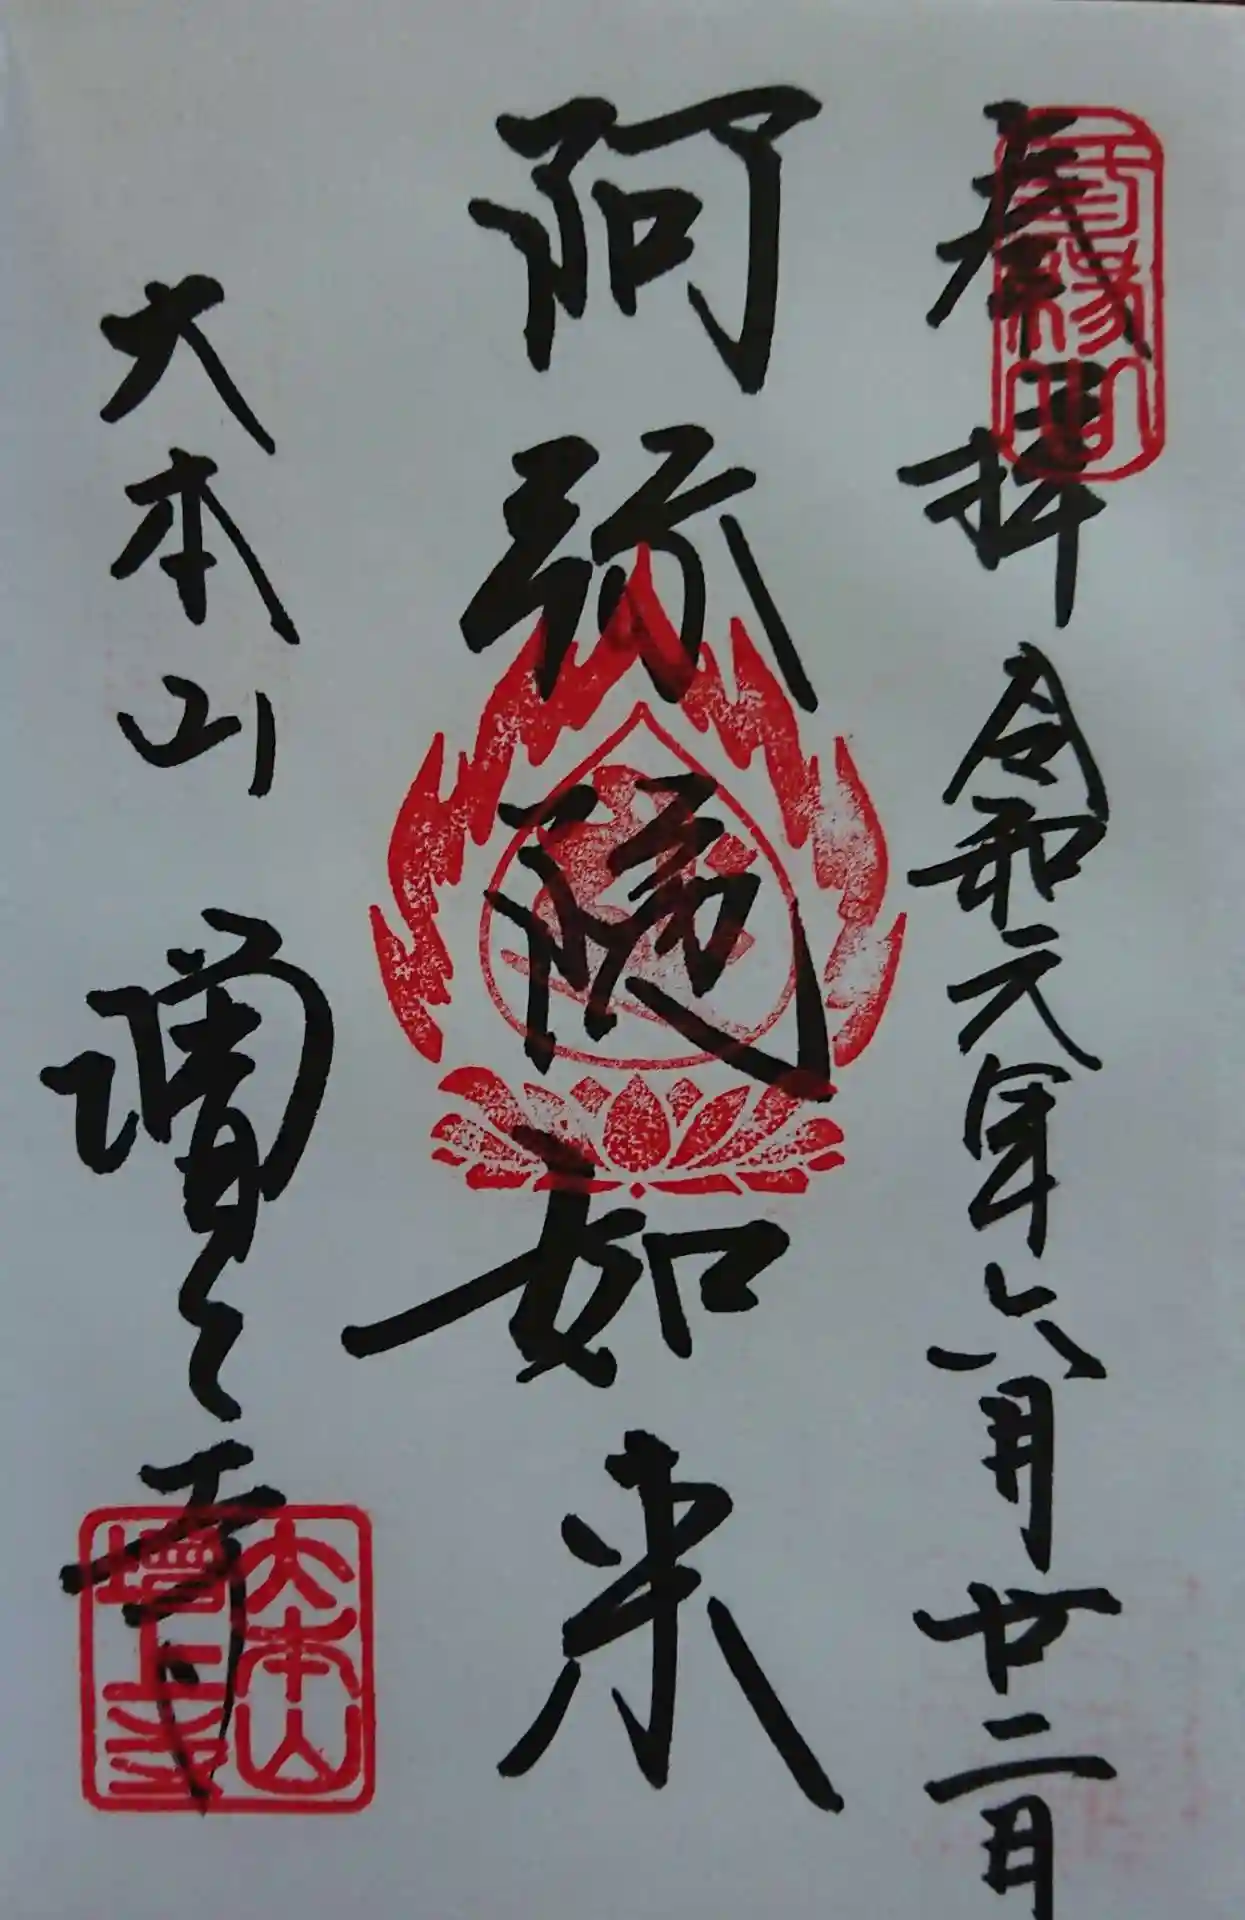 奉拝 令和元年六月廿二日
三縁山
阿弥陀如来
大本山 増上寺
大本山
増上寺